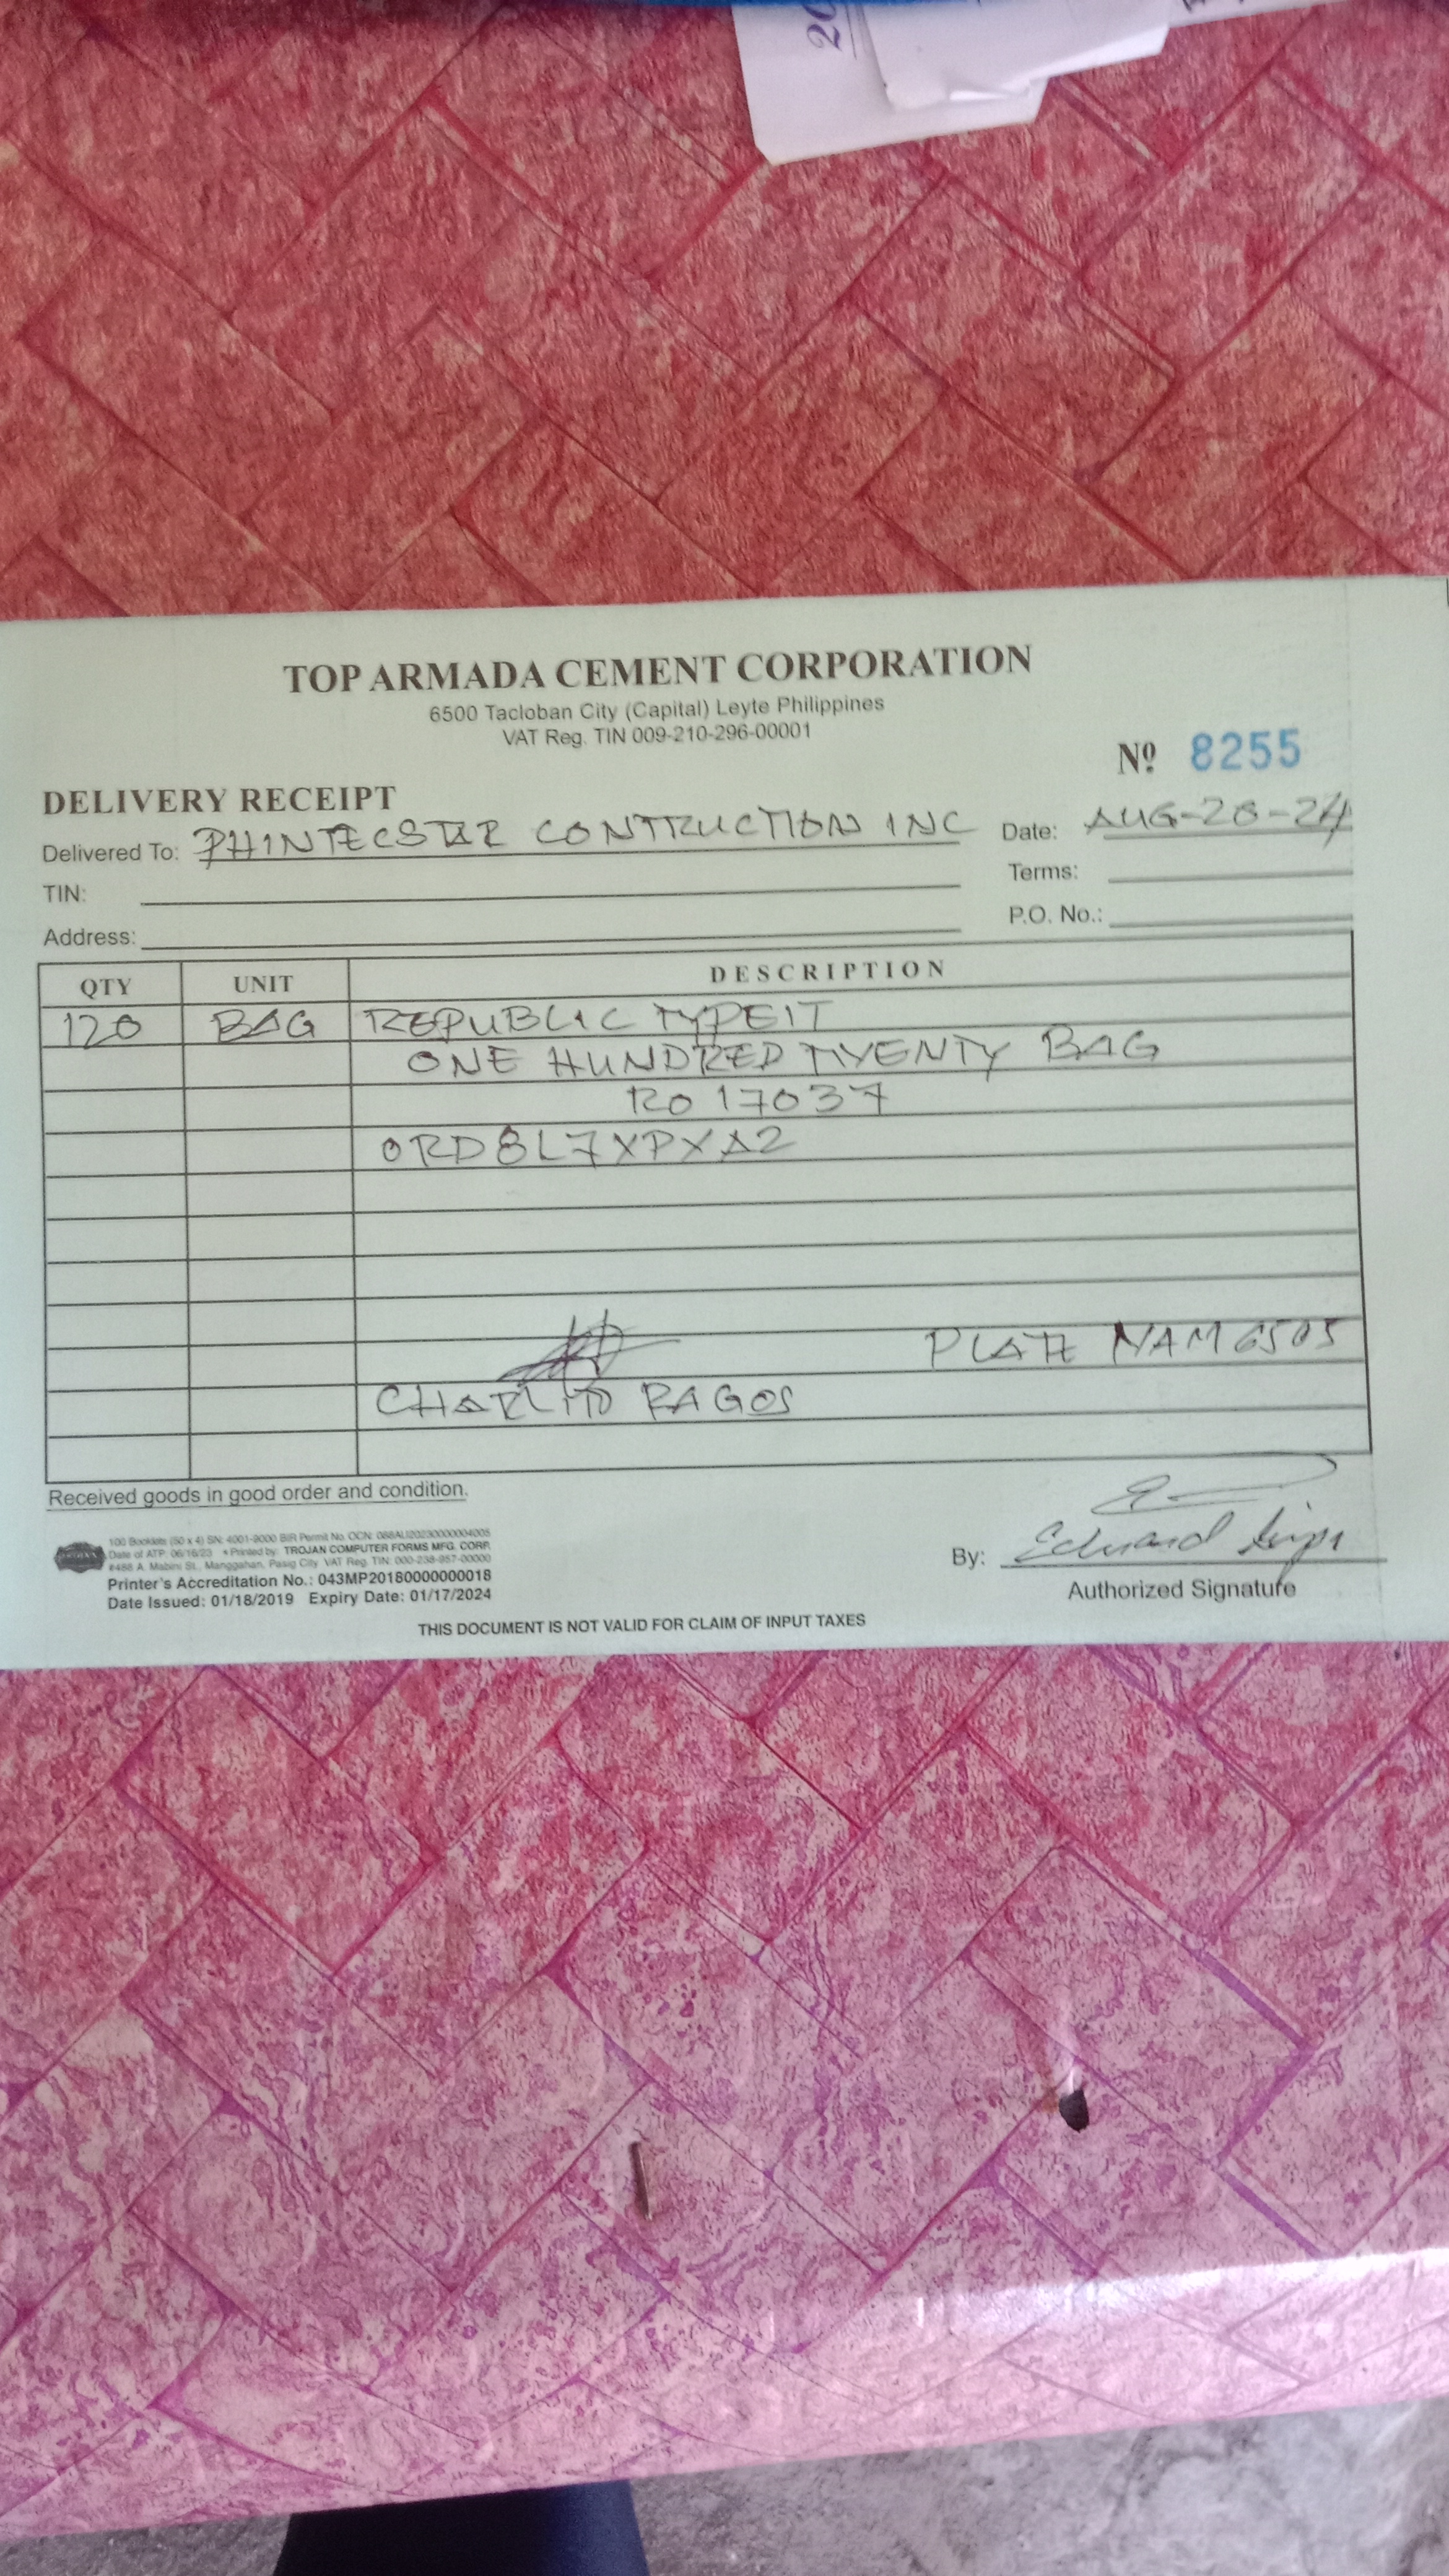 20
TOP ARMADA CEMENT CORPORATION
6500 Tacloban City (Capital) Leyte Philippines
VAT Reg. TIN 009-210-296-00001
Nº 8255
DELIVERY RECEIPT
Delivered To: PHINTECSTAR CONTRUCTION INC Date: AUG-28-24
TIN: Terms:
Address: P.O. No.:
QTY UNIT DESCRIPTION
120 BAG REPUBLIC TYPE1T
ONE HUNDRED TWENTY BAG
RO 17037
ORD8L7XPXA2
PLATE NAM6505
CHARLITO RAGOS
Received goods in good order and condition.
100 Booklets (50 x 4) SN: 4001-9000 BIR Permit No. OCN: 088AU20230000004005
Date of ATP: 06/16/23 • Printed by: TROJAN COMPUTER FORMS MFG. CORP.
#488 A. Mabini St., Manggahan, Pasig City VAT Reg. TIN: 000-238-957-00000
Printer's Accreditation No.: 043MP20180000000018
Date Issued: 01/18/2019 Expiry Date: 01/17/2024
By: Edward
Authorized Signature
THIS DOCUMENT IS NOT VALID FOR CLAIM OF INPUT TAXES